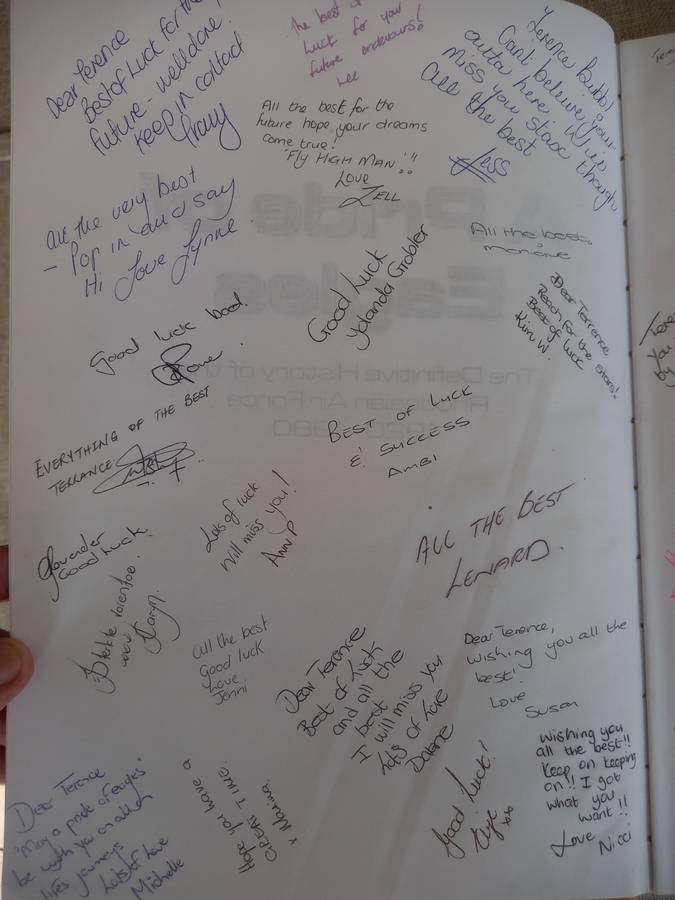 Dear Terence
Best of Luck for the
future - well done.
Keep in contact
The best of
luck for your
future endeavours!
Lee
Terence
Can't believe your
outta here! Will
miss you stax though
All the best
Jess
All the best for the
future hope your dreams
come true!
"FLY HIGH MAN"!!
Love
ZELL
All the very best
- Pop in and say
Hi Love Lynne
Good Luck
Yolanda Grobler
All the best.
Dear Terrence
Reach for the stars!
Best of luck
Kim W.
Good luck
A Pride of
Eagles
The Definitive History of the
Rhodesian Air Force
EVERYTHING OF THE BEST
TERRANCE
BEST OF LUCK
& SUCCESS
AMBI
Lots of luck
Will miss you!
Ann P
Good Luck.
ALL THE BEST
LENARD.
Sterkte vorentoe
All the best
Good luck
Love
Jenni
Dear Terence
Best of luck
and all the
best
I will miss you
Lots of love
Dear Terence,
wishing you all the
best!
Love
Susan
Dear Terence
"May a pride of eagles"
be with you on all
lifes journeys
Lots of Love
Michelle
Hope you have a
GREAT TIME.
Good Luck!
xxx
Wishing you
all the best!!
Keep on keeping
on!! I got
what you
want!!
Love
Nicci